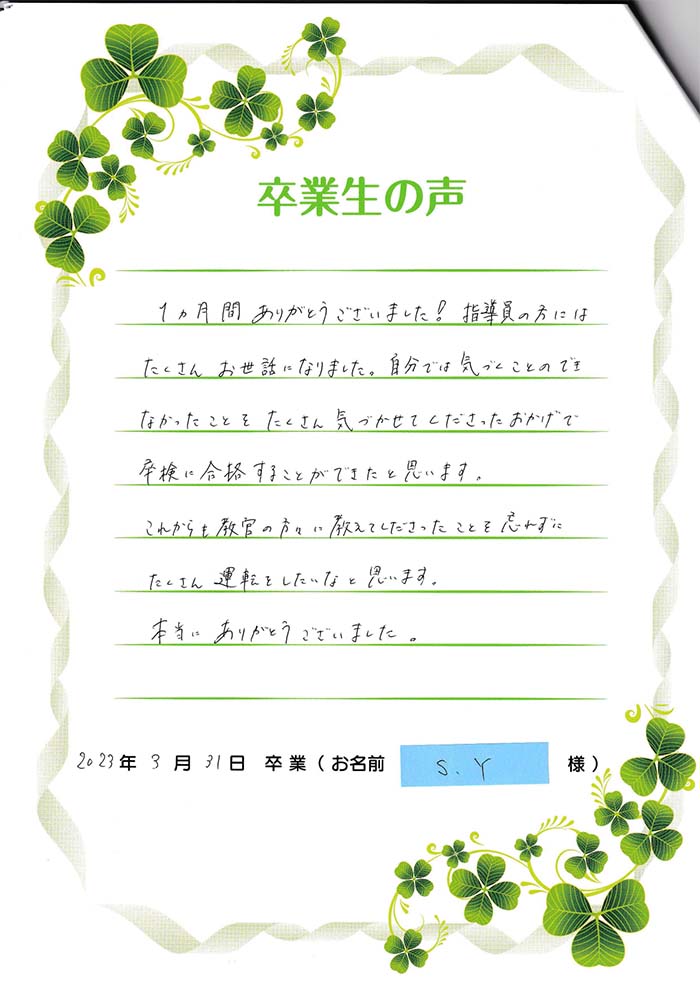 卒業生の声
1ヵ月間ありがとうございました!指導員の方には
たくさんお世話になりました。自分では気づくことのでき
なかったことをたくさん気づかせてくださったおかげで
卒検に合格することができたと思います。
これからも教官の方々に教えてくださったことを忘れずに
たくさん運転をしたいなと思います。
本当にありがとうございました。
2023年3月31日 卒業(お名前 S.Y 様)